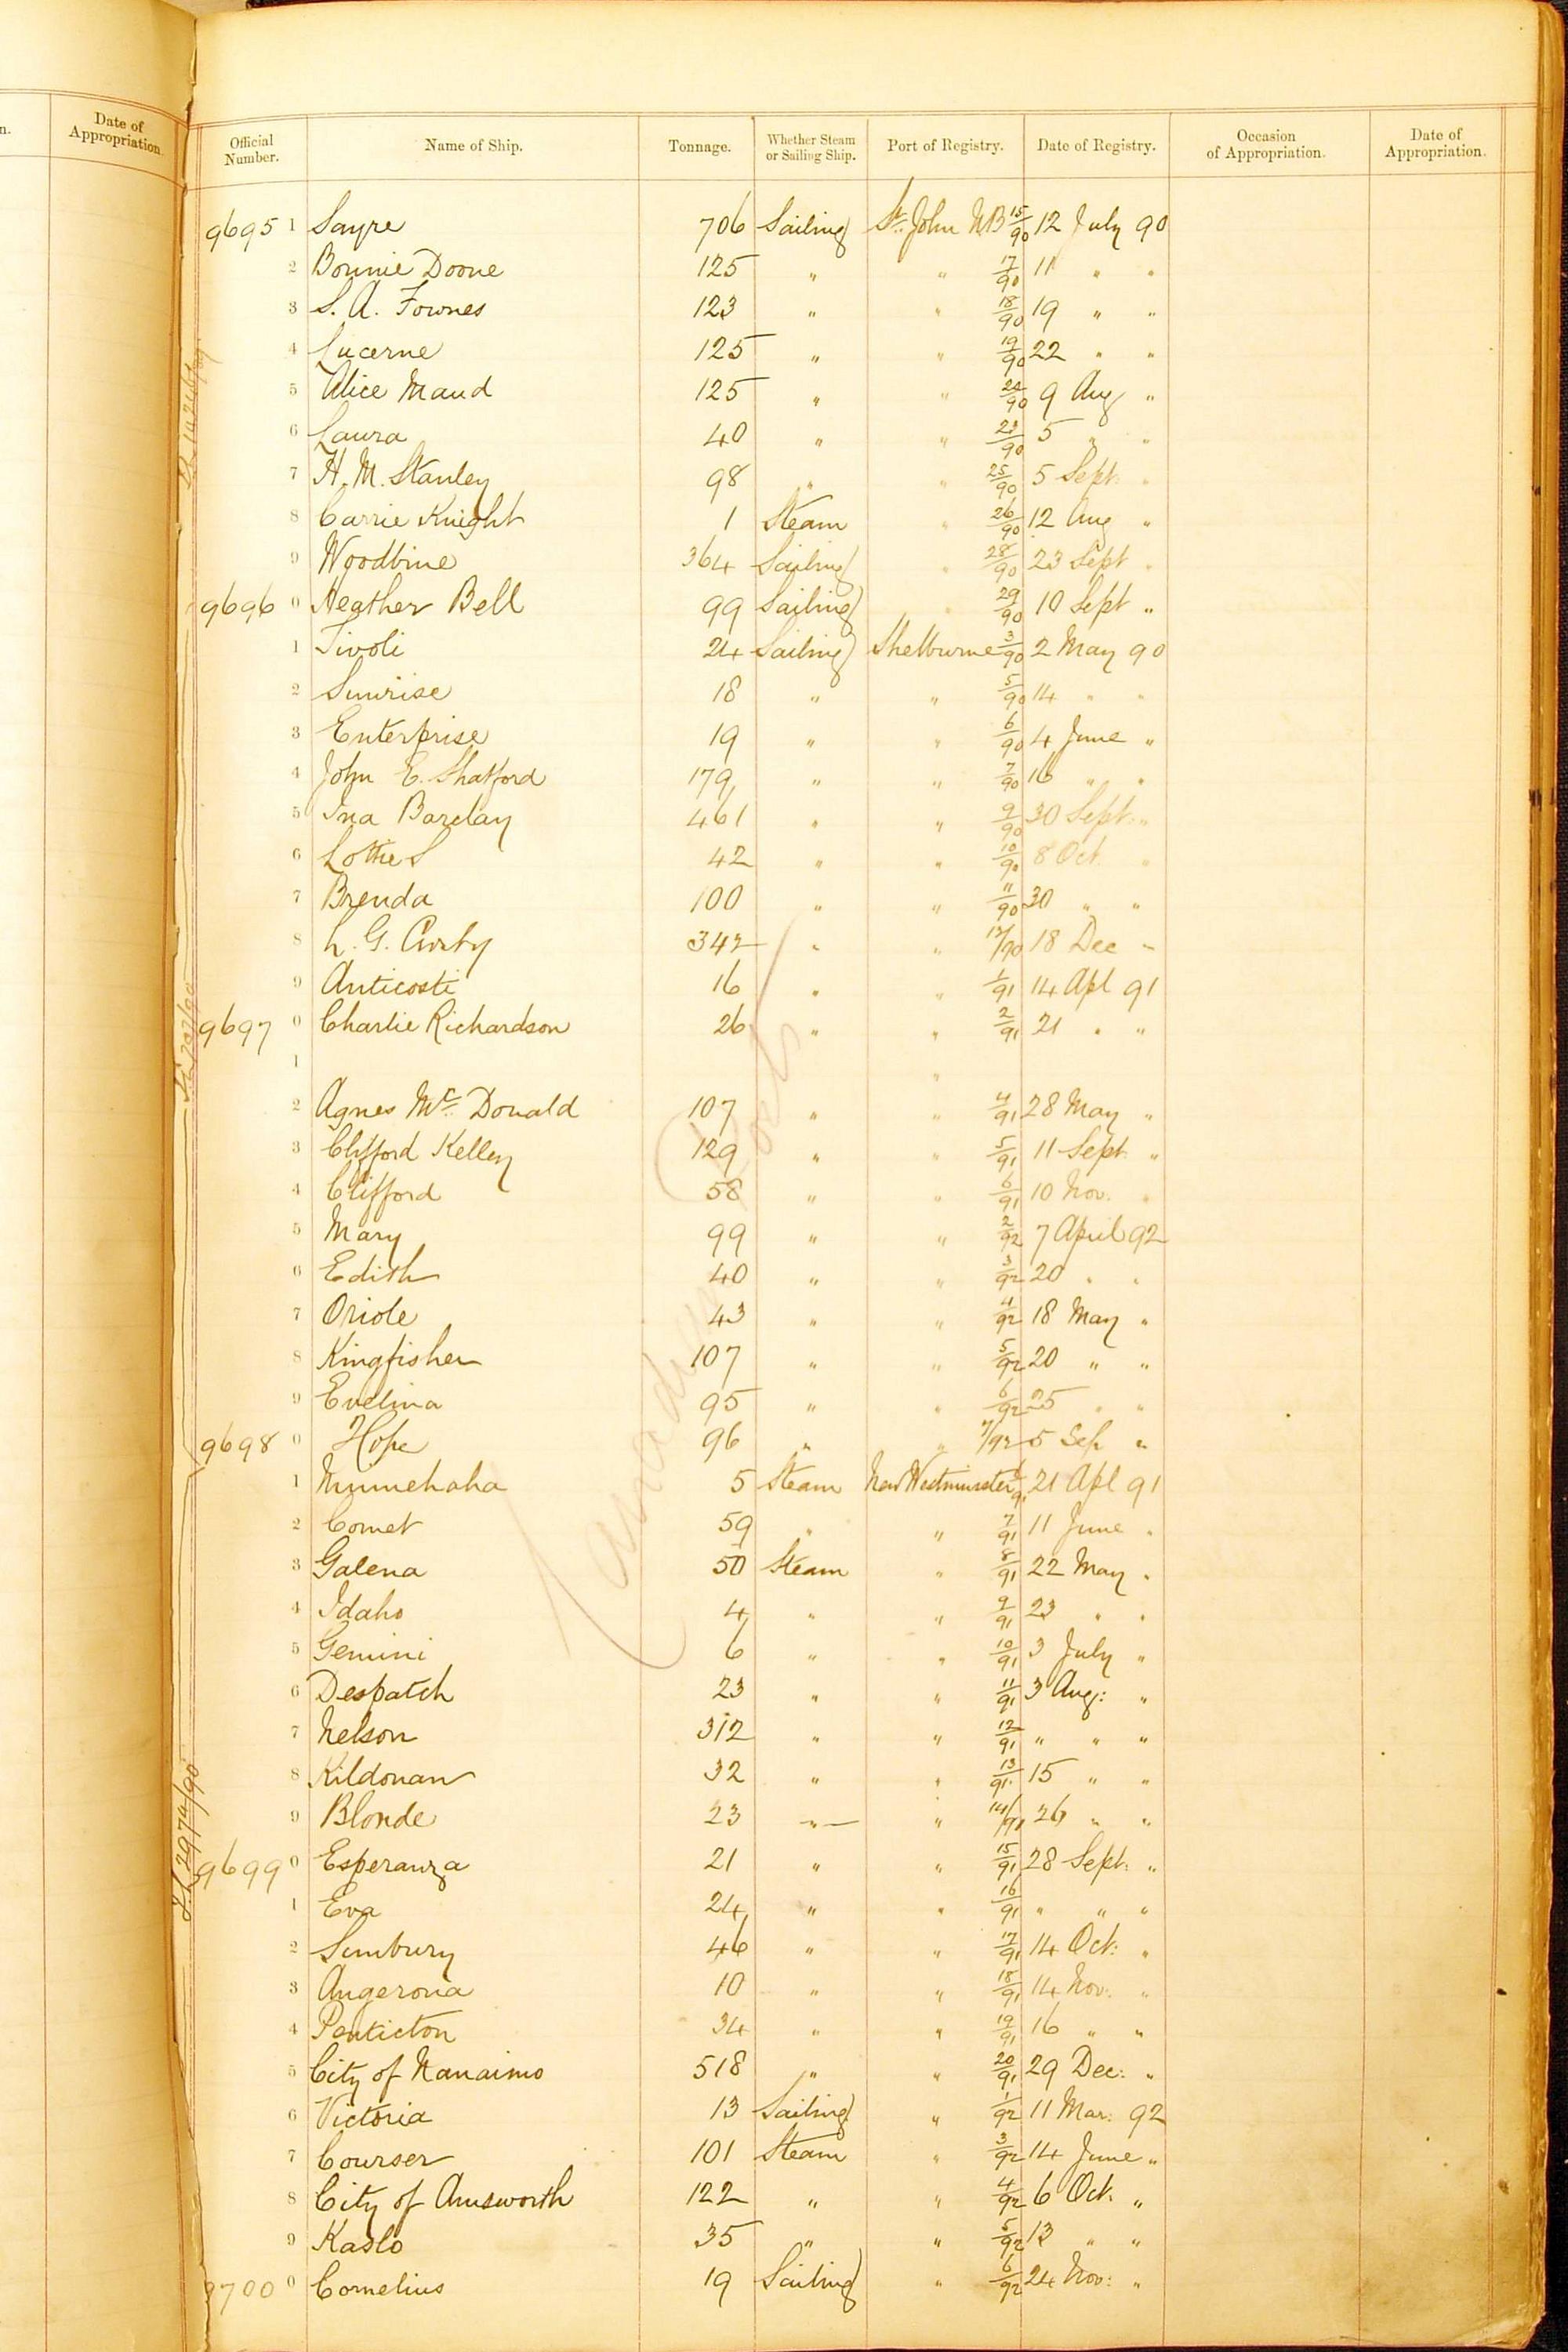 Date of Appropriation.
Official Number. Name of Ship. Tonnage. Whether Steam or Sailing Ship. Port of Registry. Date of Registry. Occasion of Appropriation. Date of Appropriation.
9695 1 Sayre 706 Sailing St. John NB 15/90 12 July 90
2 Bonnie Doone 125 " " 17/90 11 " "
3 S. A. Fownes 123 " " 18/90 19 " "
4 Lucerne 125 " " 19/90 22 " "
5 Alice Maud 125 " " /90 9 Aug "
6 Laura 40 " " 23/90 5 " "
7 H. M. Stanley 98 " " 25/90 5 Sept. "
8 Carrie Knight 1 Steam " 26/90 12 Aug "
9 Woodbine 364 Sailing " 28/90 23 Sept "
9696 0 Heather Bell 99 Sailing " 29/90 10 Sept "
1 Tivoli 24 Sailing Shelburne 3/90 2 May 90
2 Sunrise 18 " " 5/90 14 " "
3 Enterprise 19 " " 6/90 4 June "
4 John E. Shatford 179 " " 7/90 16 " "
5 Ina Barclay 461 " " 9/90 30 Sept. "
6 Lottie S 42 " " 10/90 8 Oct. "
7 Brenda 100 " " 11/90 30 " "
8 L. G. Crosby 342 " " 12/90 18 Dec "
9 Anticosti 16 " " 1/91 14 Apl 91
9697 0 Charlie Richardson 26 " " 2/91 21 " "
1 "
2 Agnes McDonald 107 " " 4/91 28 May "
3 Clifford Kelley 129 " " 5/91 11 Sept. "
4 Clifford 58 " " 6/91 10 Nov. "
5 Mary 99 " " 2/92 7 April 92
6 Edith 40 " " 3/92 20 " "
7 Oriole 43 " " 4/92 18 May "
8 Kingfisher 107 " " 5/92 20 " "
9 Evelina 95 " " 6/92 25 " "
9698 0 Hope 96 " " 7/92 5 Sep "
1 Minnehaha 5 Steam New Westminster 1/91 21 Apl 91
2 Comet 59 " " 7/91 11 June "
3 Galena 50 Steam " 8/91 22 May "
4 Idaho 4 " " 9/91 23 " "
5 Gemini 6 " " 10/91 3 July "
6 Despatch 23 " " 11/91 3 Aug: "
7 Nelson 312 " " 12/91 " " "
8 Kildonan 32 " " 13/91 15 " "
9 Blonde 23 " " 14/91 26 " "
9699 0 Esperanza 21 " " 15/91 28 Sept: "
1 Eva 24 " " 16/91 " " "
2 Sunbury 46 " " 17/91 14 Oct: "
3 Angerona 10 " " 18/91 14 Nov: "
4 Penticton 34 " " 19/91 16 " "
5 City of Nanaimo 518 " " 20/91 29 Dec: "
6 Victoria 13 Sailing " 1/92 11 Mar: 92
7 Courser 101 Steam " 3/92 14 June "
8 City of Ainsworth 122 " " 4/92 6 Oct. "
9 Kaslo 35 " " 5/92 13 " "
9700 0 Cornelius 19 Sailing " 6/92 24 Nov: "
Canadian Ports